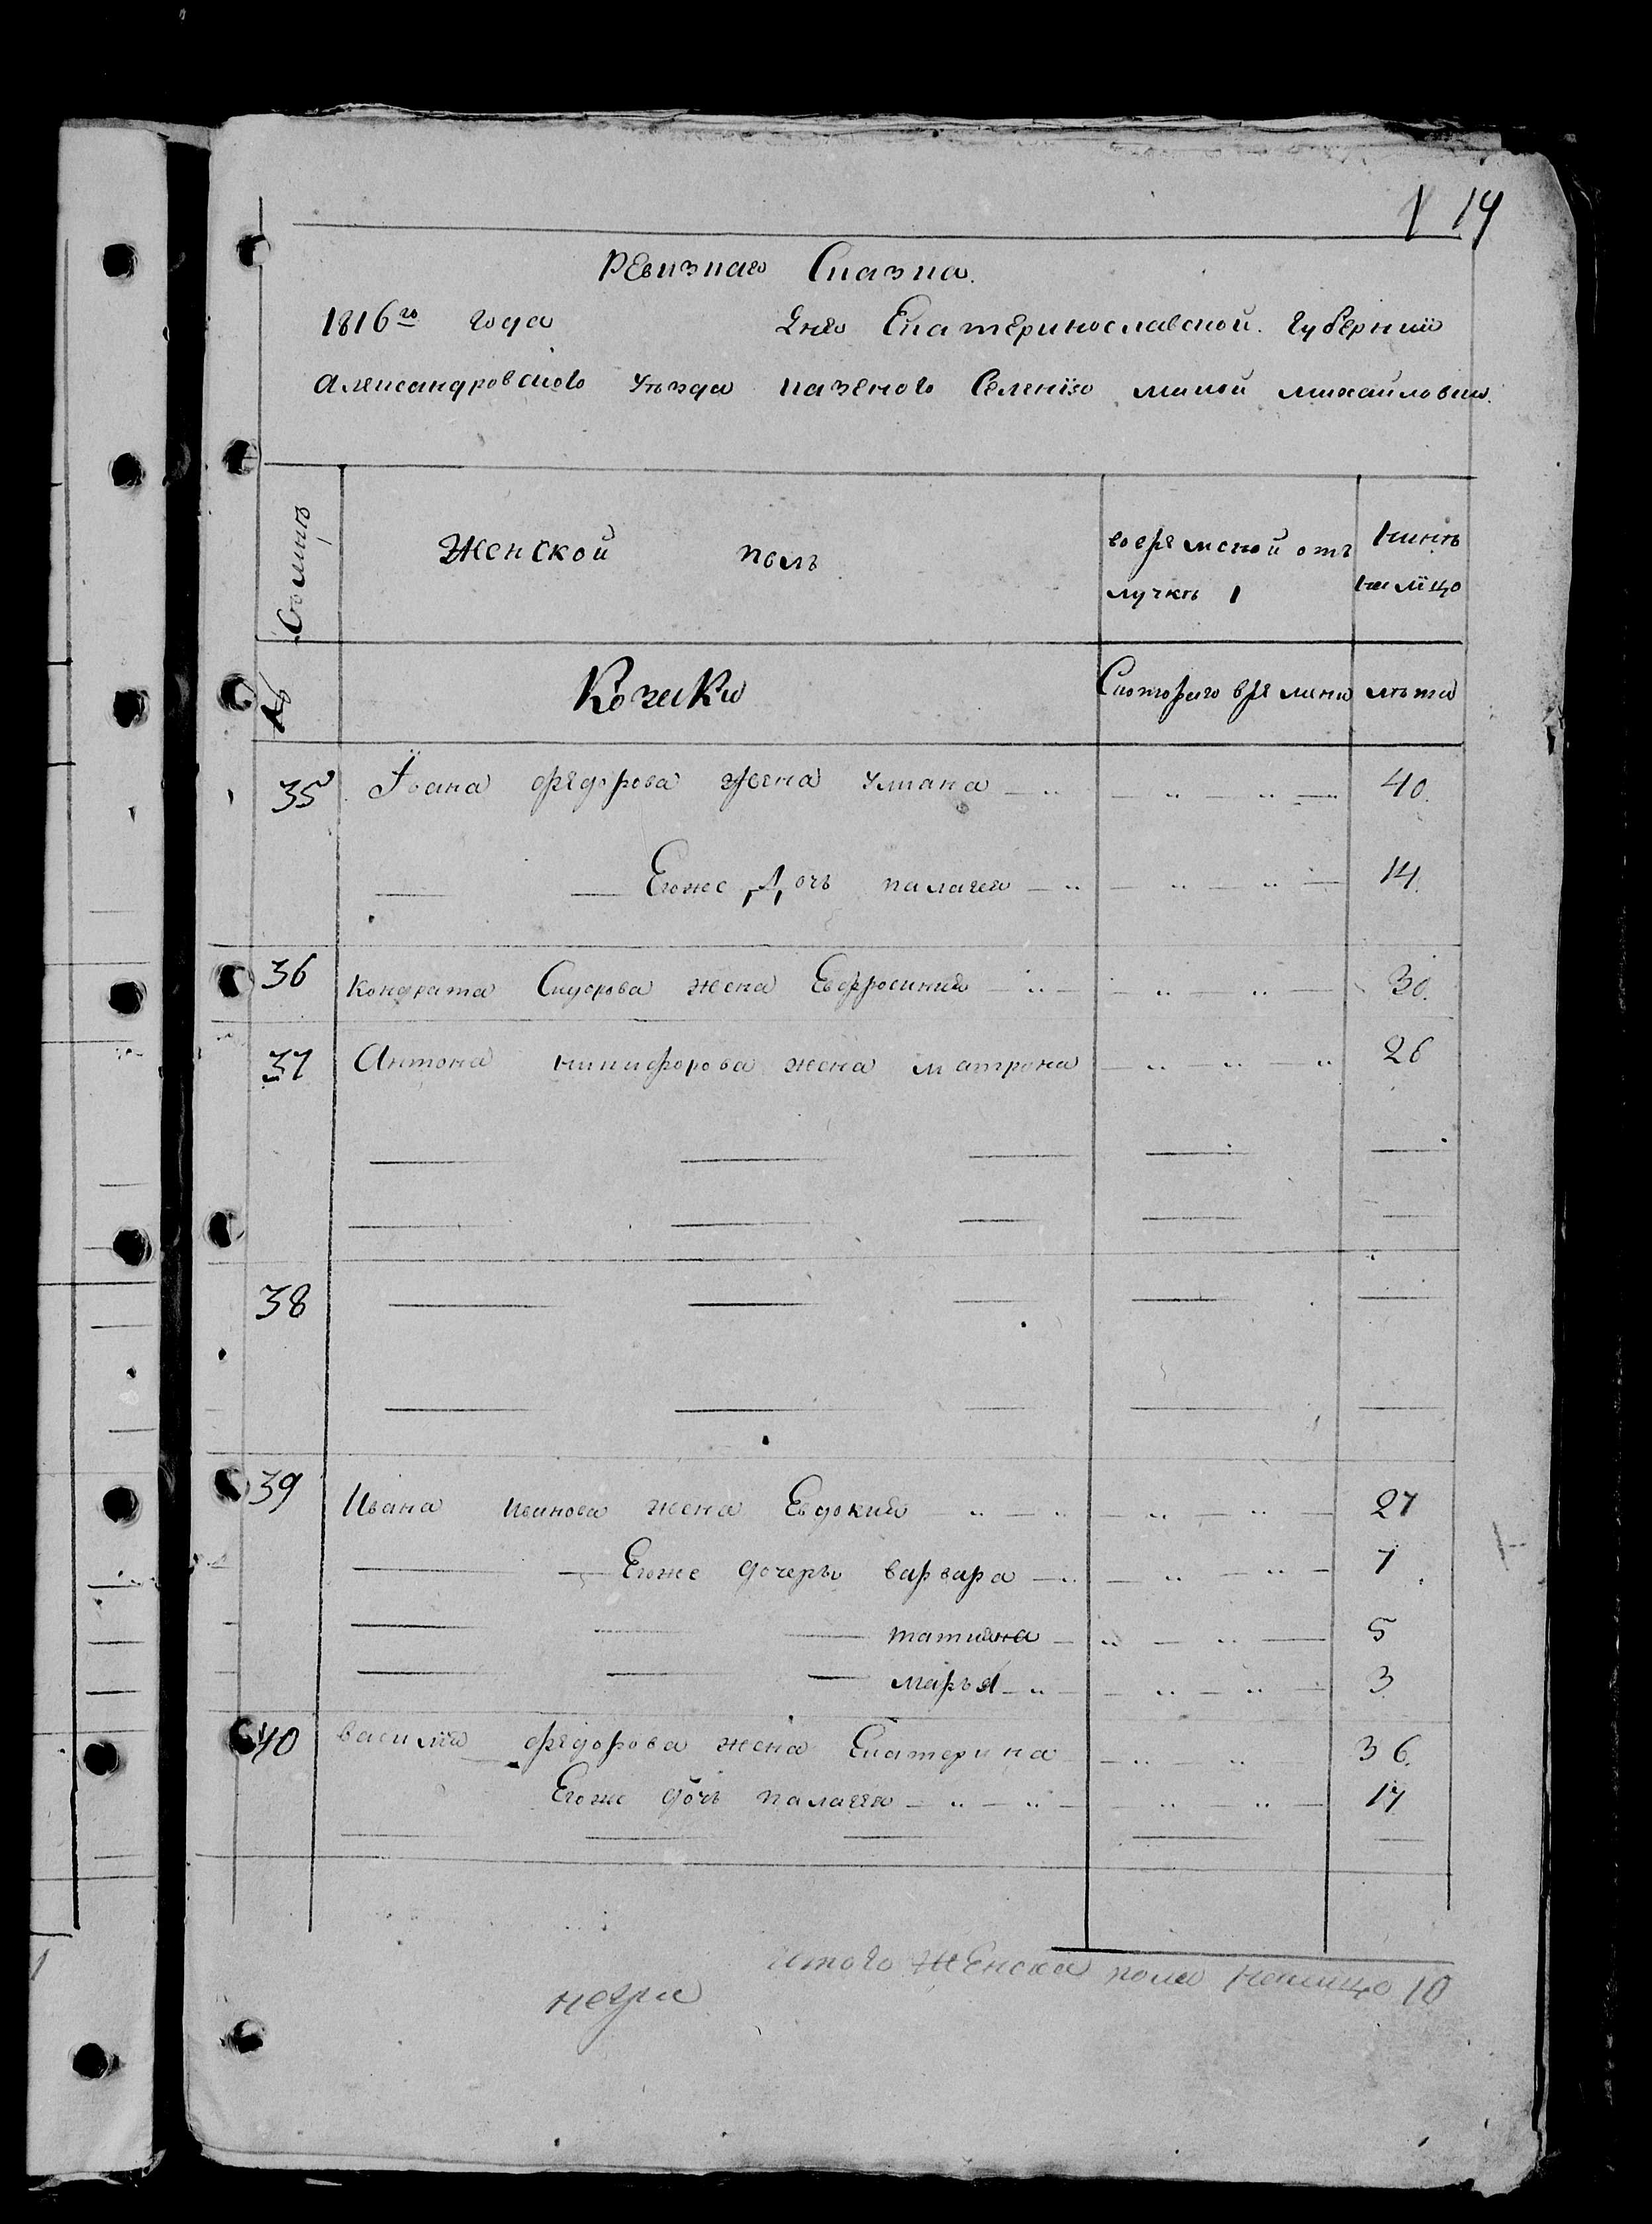 14
Ревизная Сказка.
1816го года дня Екатеринославской Губернии
Александровского уезда казеного Селения Милой Михайловки.
Семьи
Женской полъ
во временной от
лучкѣ
нынѣ
на лицо
№
Козачки
С которого времени
лѣта
35 Ївана Федорова жена Улиана 40.
Егоже Дочь палагея 14.
36 Кондрата Сидорова жена Евфросиния 30.
37 Антона никифорова жена матрона 26
38
39 Ивана иванова жена Евдокия 27
Егоже дочеры варвара 7
татияна 5
марья 3
40 василия федорова жена Екатерина 36.
Егоже дочь палагея 17
Итого женска пола налицо 10